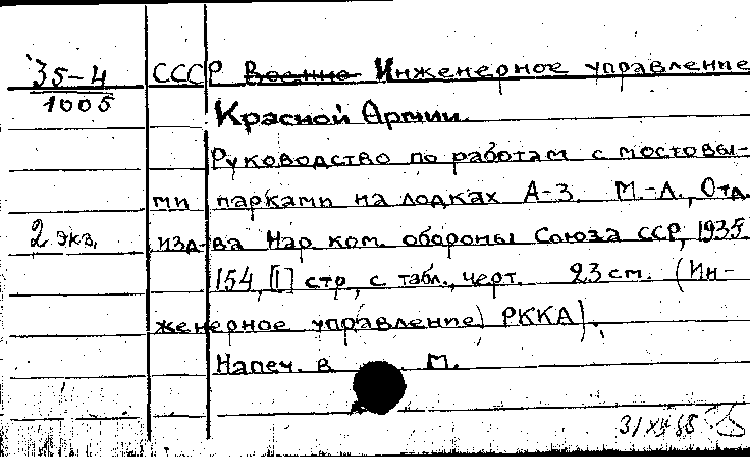 35-4 СССР Военно- Инженерное управление
1005 Красной Армии.
Руководство по работам с мостовы-
ми парками на лодках А-3. М.-Л., Отд.
2 экз. изд-ва Нар. ком. обороны Союза ССР, 1935
154, [1] стр., с табл., черт. 23 см. (Ин-
женерное управление РККА).
Напеч. в М.